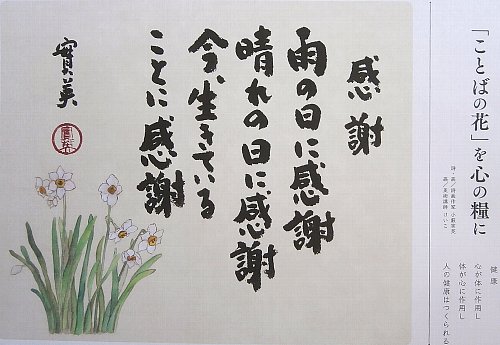 「ことばの花」を心の糧に
健康
心が体に作用し
体が心に作用し
人の健康はつくられる
感謝
雨の日に感謝
晴れの日に感謝
今、生きている
ことに感謝
實美